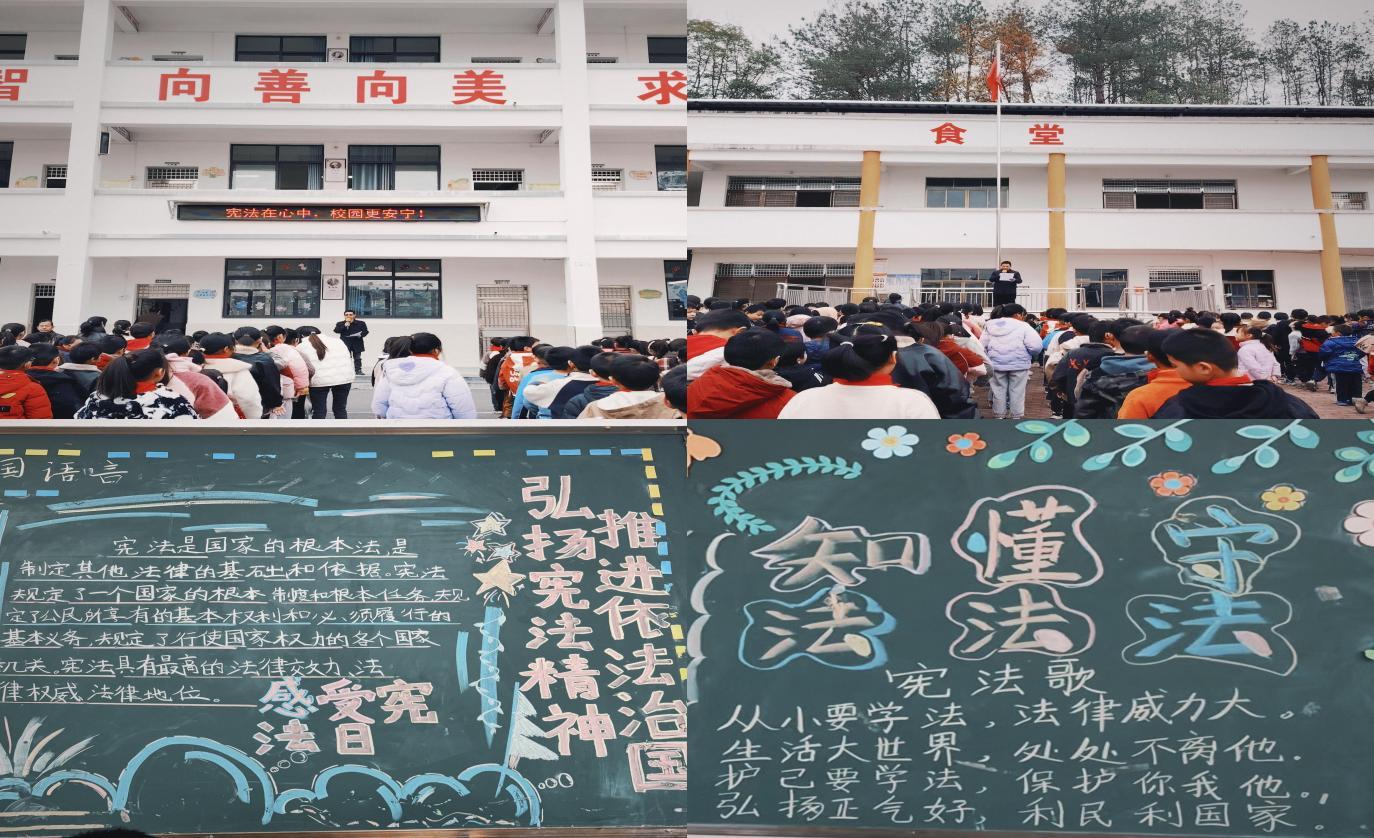 智 向善向美 求
宪法在心中，校园更安宁！
食堂
国语言
宪法是国家的根本法,是
制定其他法律的基础和依据。宪法
规定了一个国家的根本制度和根本任务,规
定了公民所享有的基本权利和必须履行的
基本义务,规定了行使国家权力的各个国家
机关。宪法具有最高的法律效力,法
律权威法律地位。
感受宪
法日
弘扬宪法精神
推进依法治国
知法
懂法
守法
宪法歌
从小要学法,法律威力大。
生活大世界,处处不离他.
护己要学法,保护你我他。,
弘扬正气好,利民利国家.